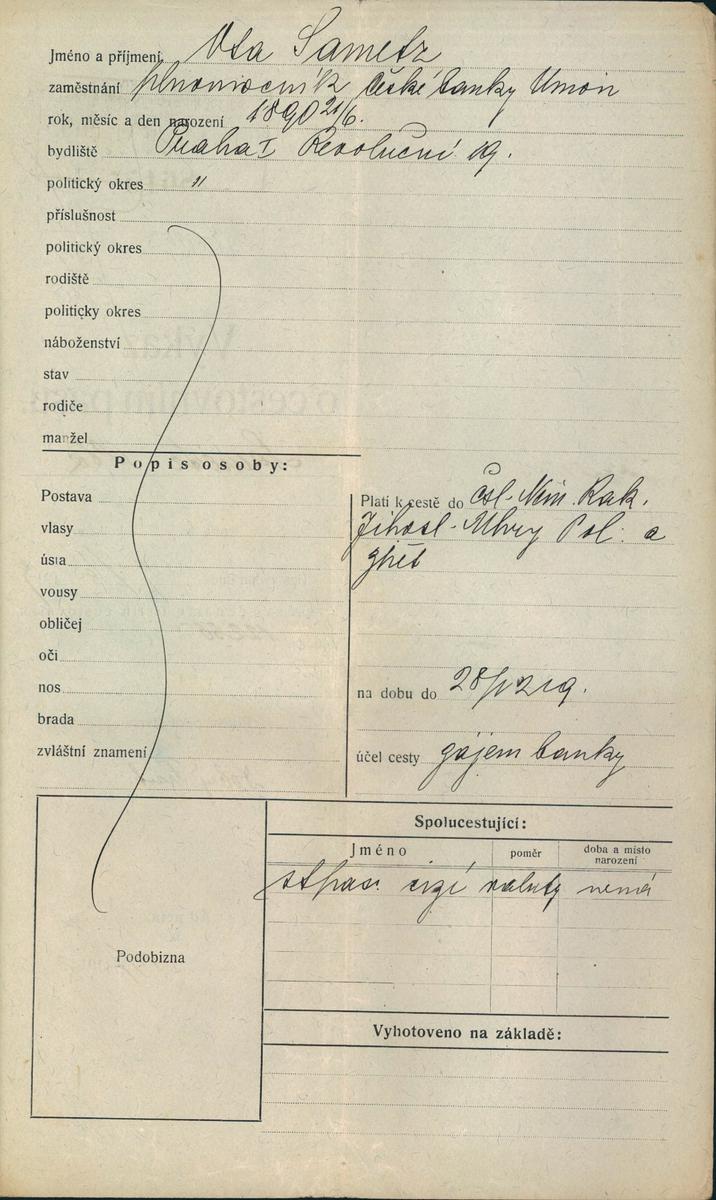 Jméno a příjmení Ota Sametz
zaměstnání plnomocník České banky Union
rok, měsíc a den narození 1890 21/6.
bydliště Praha I Revoluční 19.
politický okres "
příslušnost
politický okres
rodiště
politický okres
náboženství
stav
rodiče
manžel
Popis osoby:
Postava
vlasy
ústa
vousy
obličej
oči
nos
brada
zvláštní znamení
Platí k cestě do Čsl. Něm. Rak.
Jihosl. Pol. a
zpět
na dobu do
účel cesty zájem banky
Spolucestující:
Jméno
poměr
doba a místo narození
cizí valuty nemá
Podobizna
Vyhotoveno na základě: